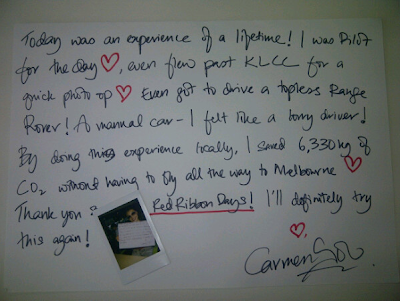 Today was an experience of a lifetime! I was Pilot
for the day, even flew past KLCC for a
quick photo op Even got to drive a topless Range
Rover! A manual car - I felt like a lorry driver!
By doing this experience locally, I saved 6,330 kg of
CO2 without having to fly all the way to Melbourne
Thank you Red Ribbon Days! I'll definitely try
this again!
Carmen